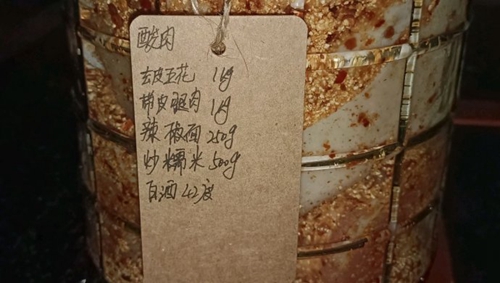 酸肉
去皮五花 1kg
带皮腿肉 1kg
辣椒面 250g
炒糯米 500g
白酒 42度